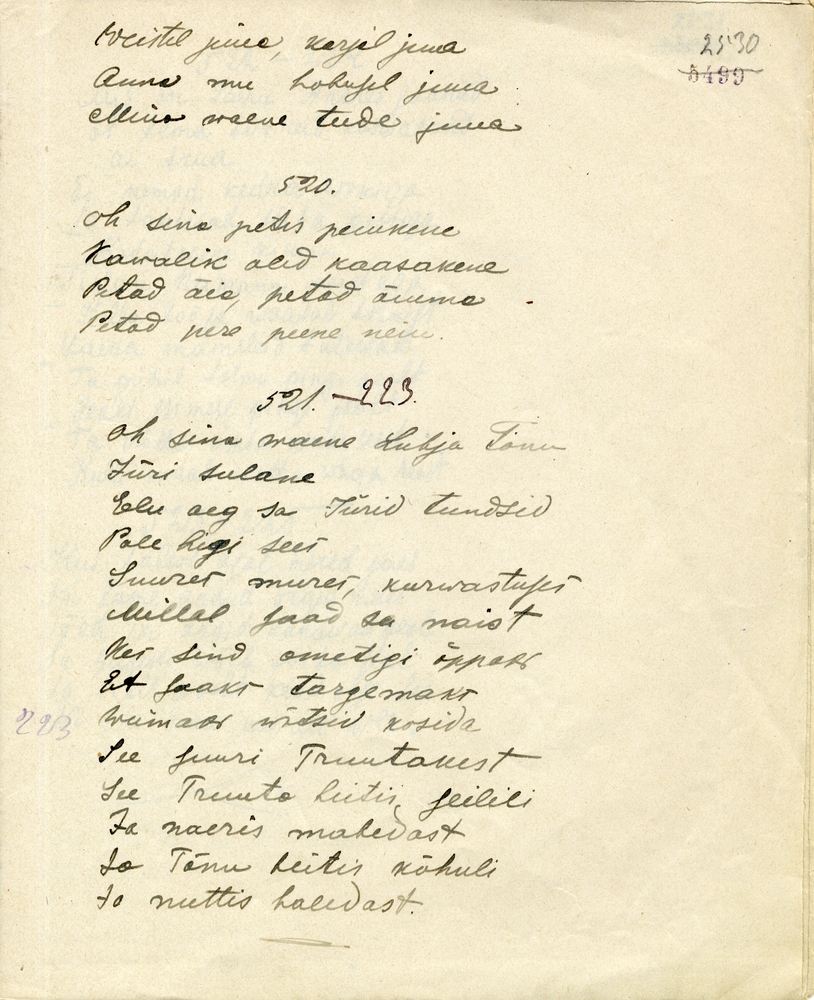 Weistel juua, karjal juua
2530
5499
Anna mu hobusel juua
Mina waene tude juua
520.
Oh sina petis peiukene
Kawalik oled kaasakene
Petad äia, petad ämma
Petad pere peene neiu.
521. — 223.
Oh sina waene Lubja Tõnu
Jüri sulane
Elu aeg sa Jürid tundsid
Pole higi sees
Suures mures, kurwastuses
Millal saad sa naist
Kes sind ometigi õppaks
Et saaks targemaks
223 Wiimaks wõtsid kosida
See suuri Truutakest
See Truuta heitis seilili
Ja naeris mahedast
Ja Tõnu heitis kõhuli
Ja nuttis haledast.